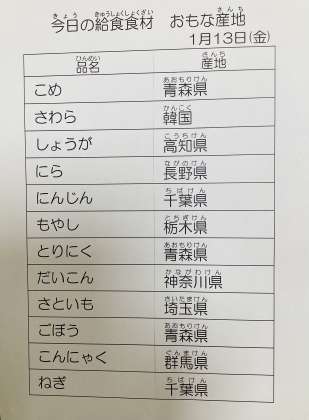 今日の給食食材 おもな産地
1月13日(金)
品名 産地
こめ 青森県
さわら 韓国
しょうが 高知県
にら 長野県
にんじん 千葉県
もやし 栃木県
とりにく 青森県
だいこん 神奈川県
さといも 埼玉県
ごぼう 青森県
こんにゃく 群馬県
ねぎ 千葉県